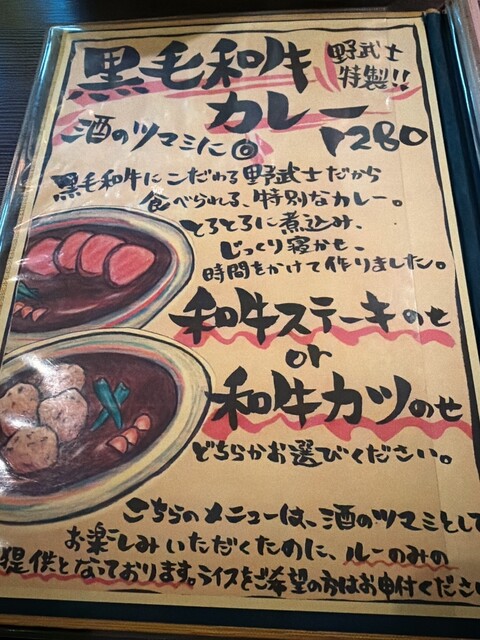 黒毛和牛
野武士
特製!!
カレー
1280
酒のツマミに◎
黒毛和牛にこだわる野武士だから
食べられる、特別なカレー。
とろとろに煮込み、
じっくり寝かせ、
時間をかけて作りました。
和牛ステーキのせ
or
和牛カツのせ
どちらかお選びください。
こちらのメニューは、酒のツマミとして
お楽しみいただくために、ルーのみの
提供となっております。ライスをご希望の方はお申付ください